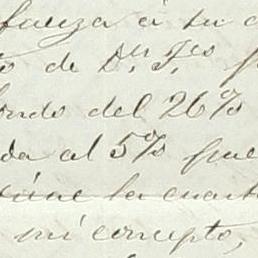 fianza á su c
de Dn. Fco
fondo del 26%
da al 5% que
tiene la cuart
mi concepto,